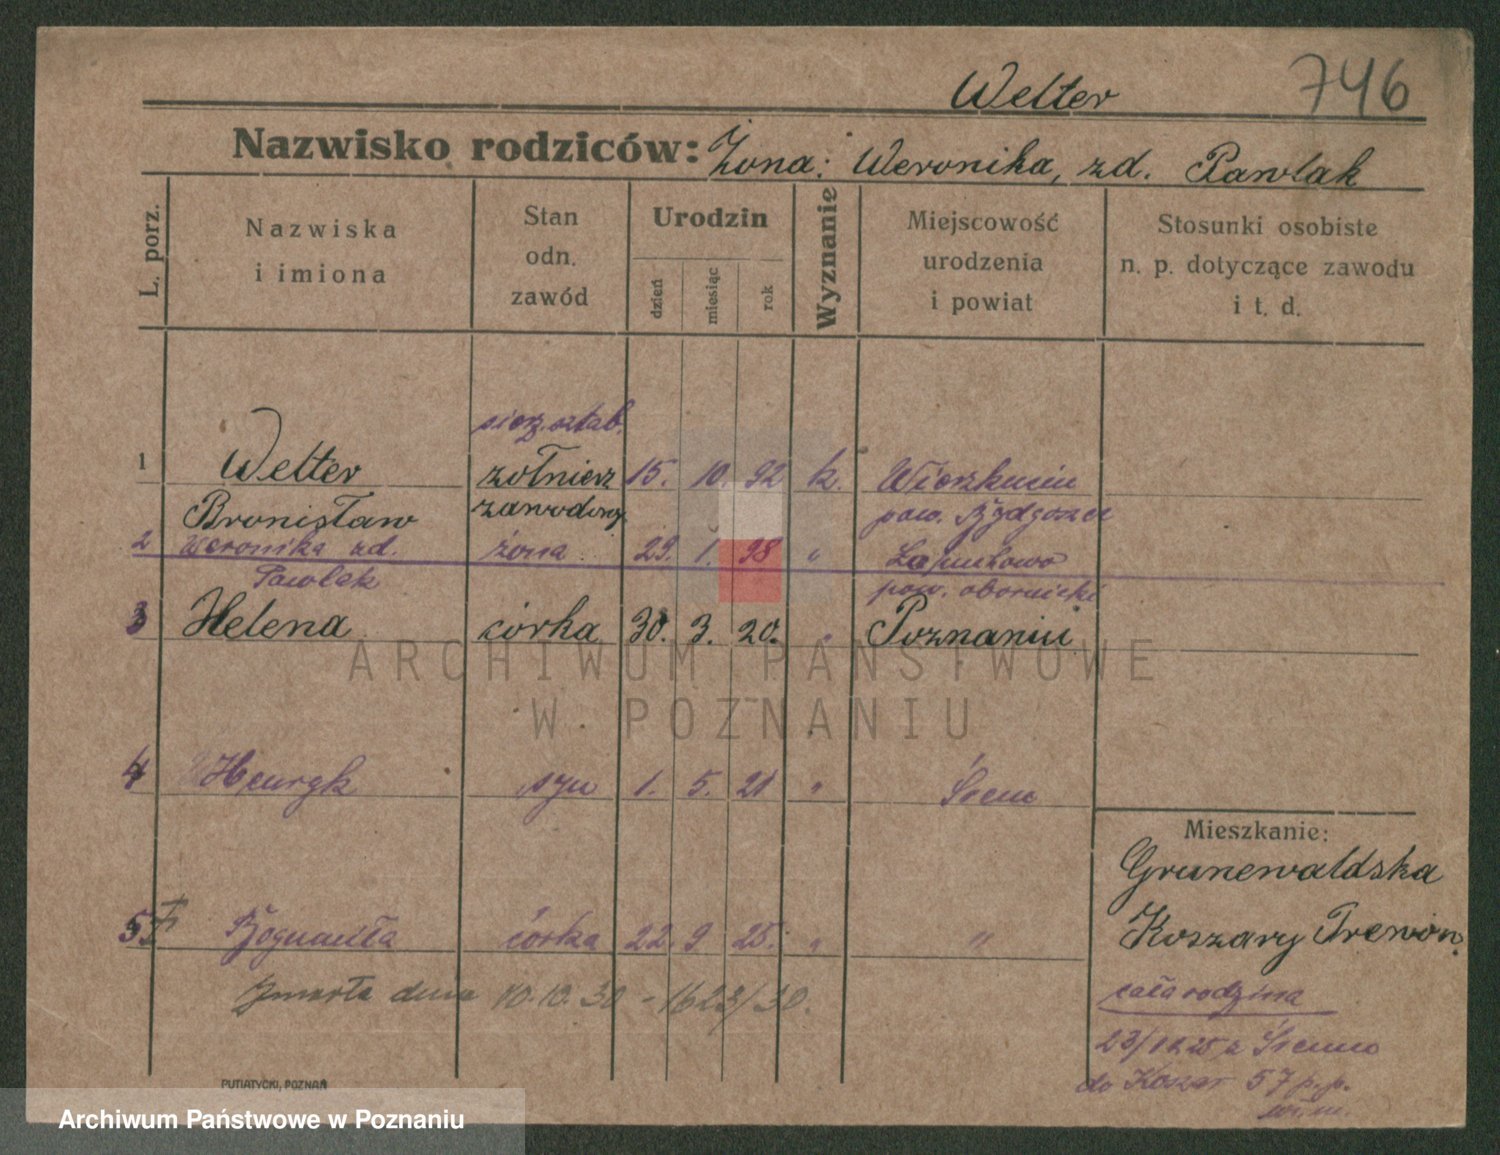 Welter 746
Nazwisko rodziców: Żona: Weronika, zd. Pawlak
L. porz.
Nazwiska i imiona
Stan odn. zawód
Urodzin
dzień
miesiąc
rok
Wyznanie
Miejscowość urodzenia i powiat
Stosunki osobiste n. p. dotyczące zawodu i t. d.
sierz. sztab.
1 Welter żołnierz 15. 10. 92 k.
Bronisław zawodowy pow. Bydgoszcz
2 Weronika zd. żona 29. 1. 98 "
Pawlak pow. obornicki
3 Helena córka 30. 3. 20. " Poznaniu
ARCHIWUM PAŃSTWOWE
W POZNANIU
4 Henryk syn 1. 5. 21 " Śrem
Mieszkanie:
Grunewaldska
5 Bogumiła córka 22 9. 25. " "
Koszary Prewon.
Zmarła dnia 10.10.30 - 1623/30.
cała rodzina
do Koszar 57 p.p.
PUTIATYCKI, POZNAŃ
Archiwum Państwowe w Poznaniu